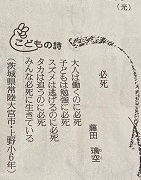 （光）
こどもの詩
必死
藤田 璃空
大人は働くのに必死
子どもは勉強に必死
スズメは逃げるのに必死
タカは追うのに必死
みんな必死に生きている
（茨城県常陸大宮市・上野小6年）